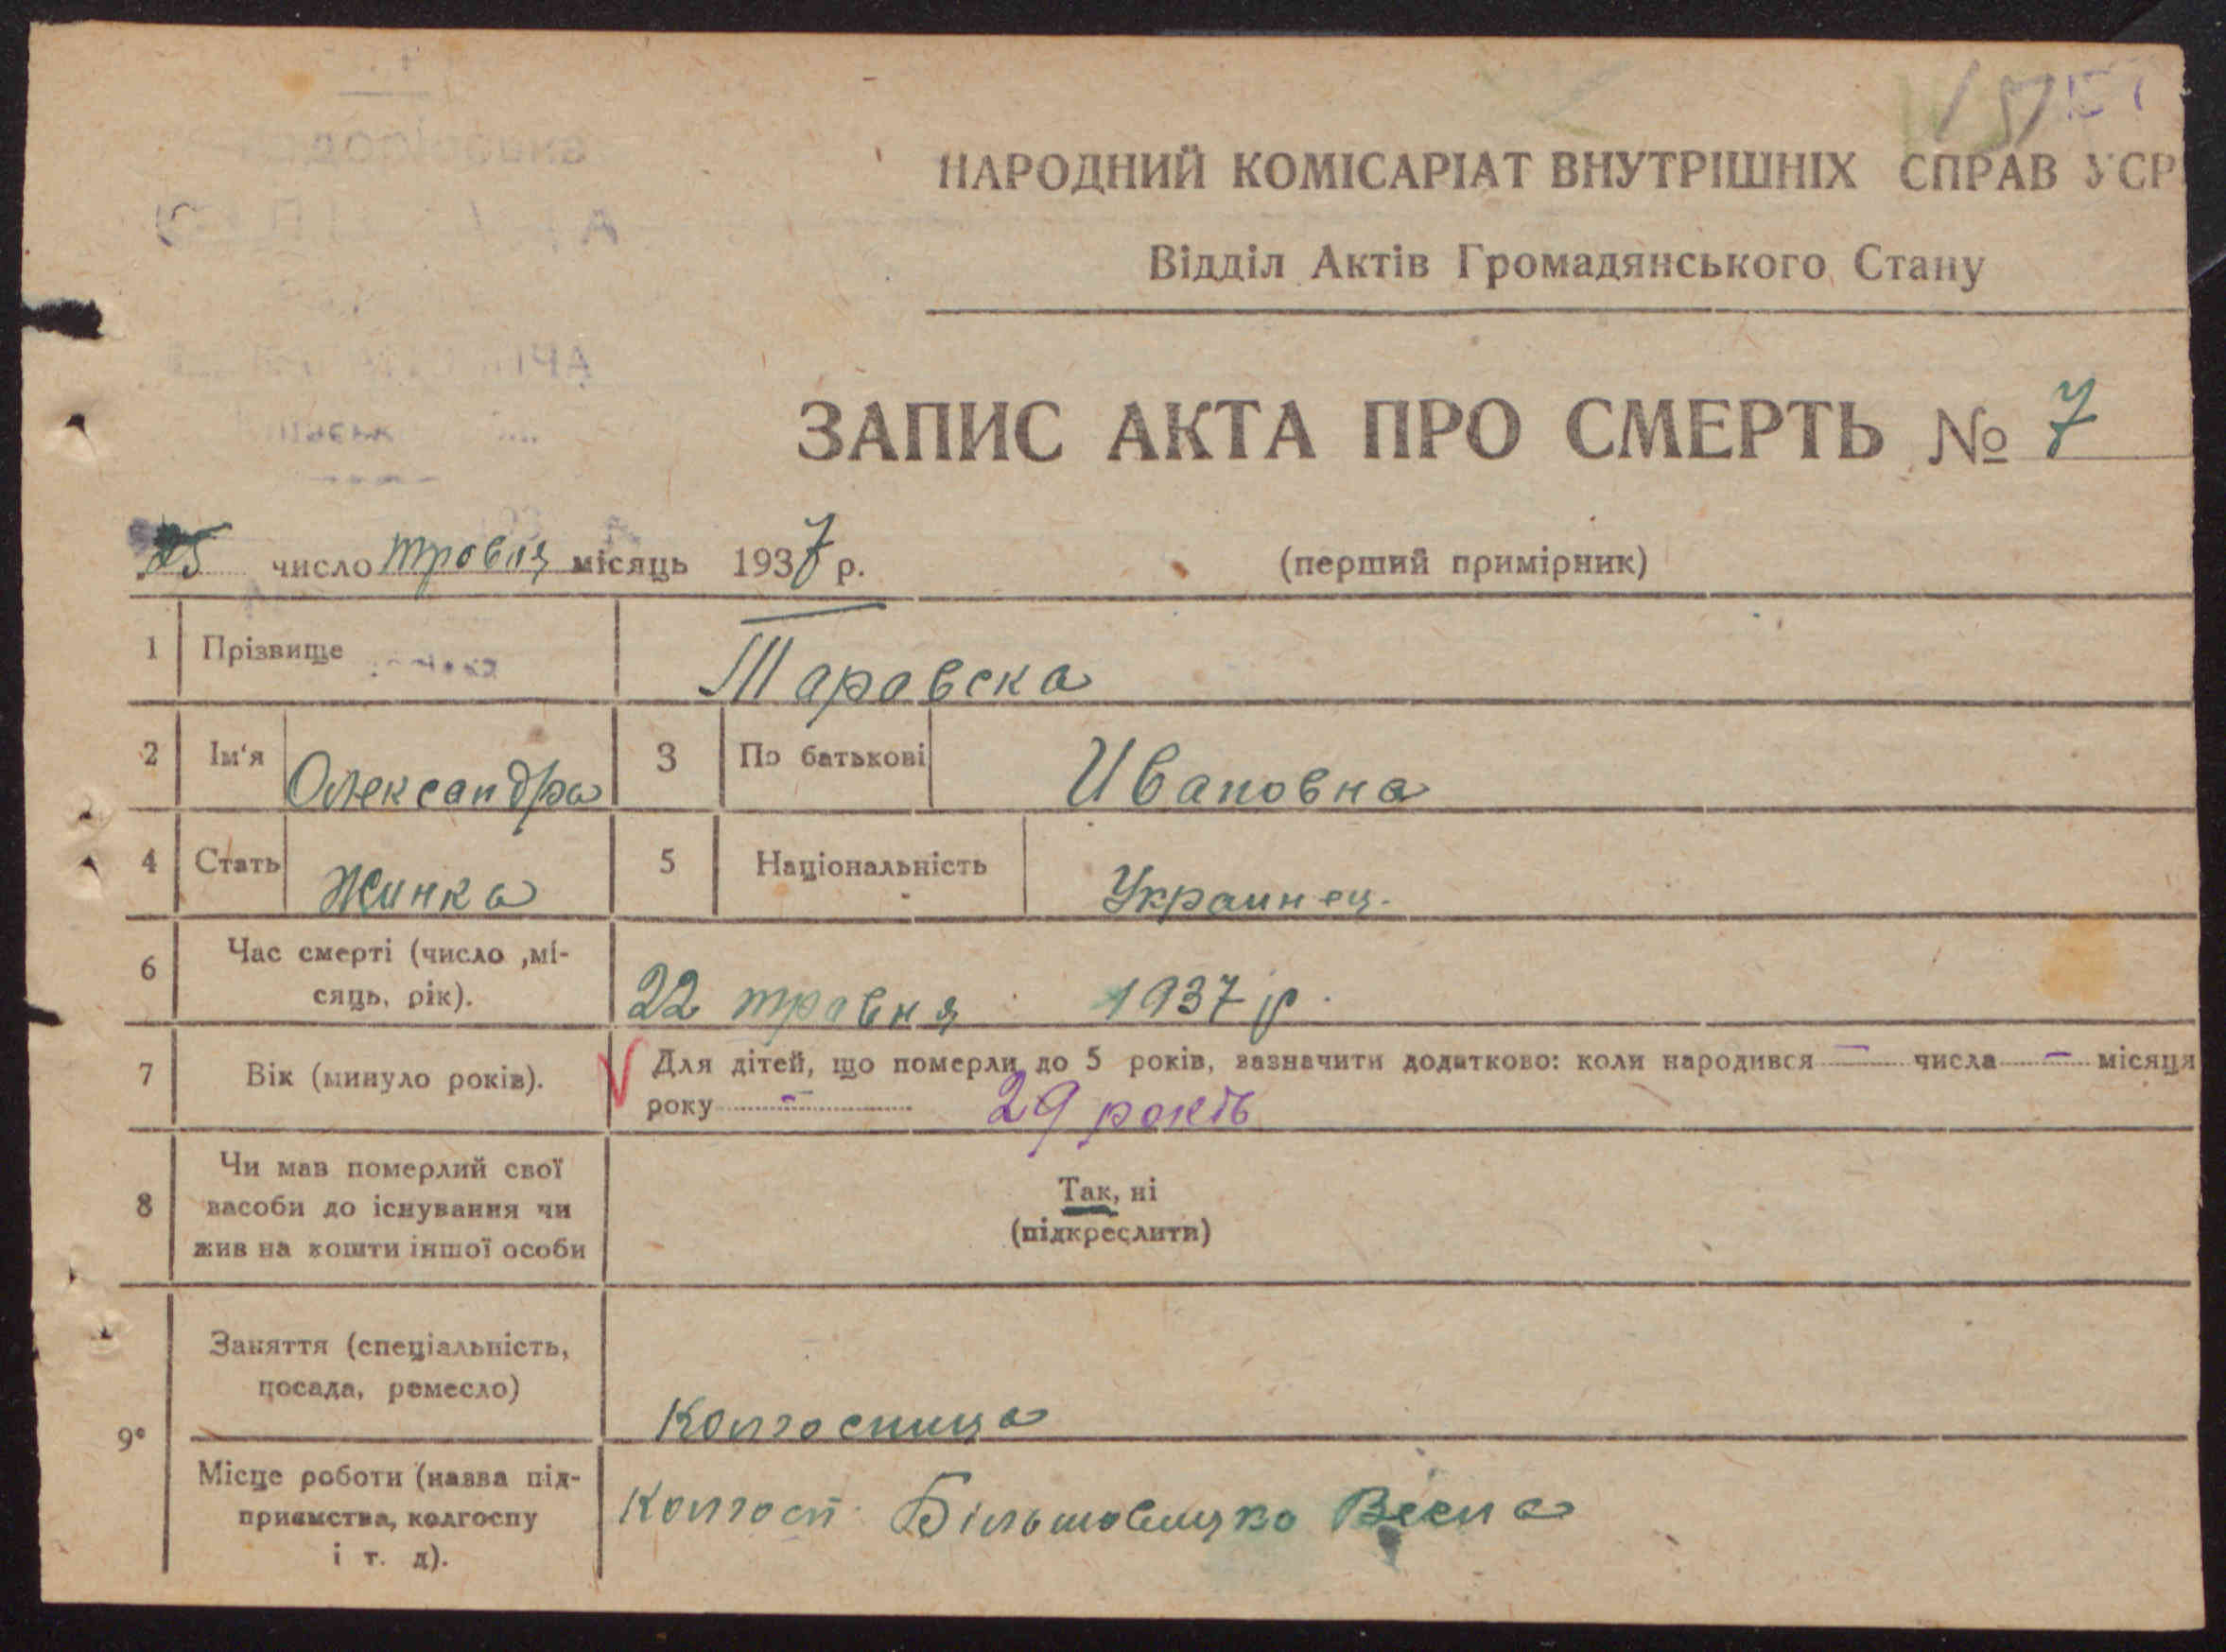 НАРОДНИЙ КОМІСАРІАТ ВНУТРІШНІХ СПРАВ УСР
Відділ Актів Громадянського Стану
ЗАПИС АКТА ПРО СМЕРТЬ № 7
25 число травня місяць 1937 р. (перший примірник)
1 Прізвище Таравска
2 Ім'я Олександра 3 По батькові Ивановна
4 Стать Жинка 5 Національність Украинец.
6 Час смерті (число ,мі-
сяць, рік). 22 травня 1937 р.
7 Вік (минуло років). Для дітей, що померли до 5 років, зазначити додатково: коли народився — числа — місяця
року - 29 років
Чи мав померлий свої
8 засоби до існування чи Так, ні
жив на кошти іншої особи (підкреслити)
Заняття (спеціальність,
посада, ремесло) Колгосница
9
Місце роботи (назва під-
приємства, колгоспу Колгосп Більшовицка Весна
і т. д).